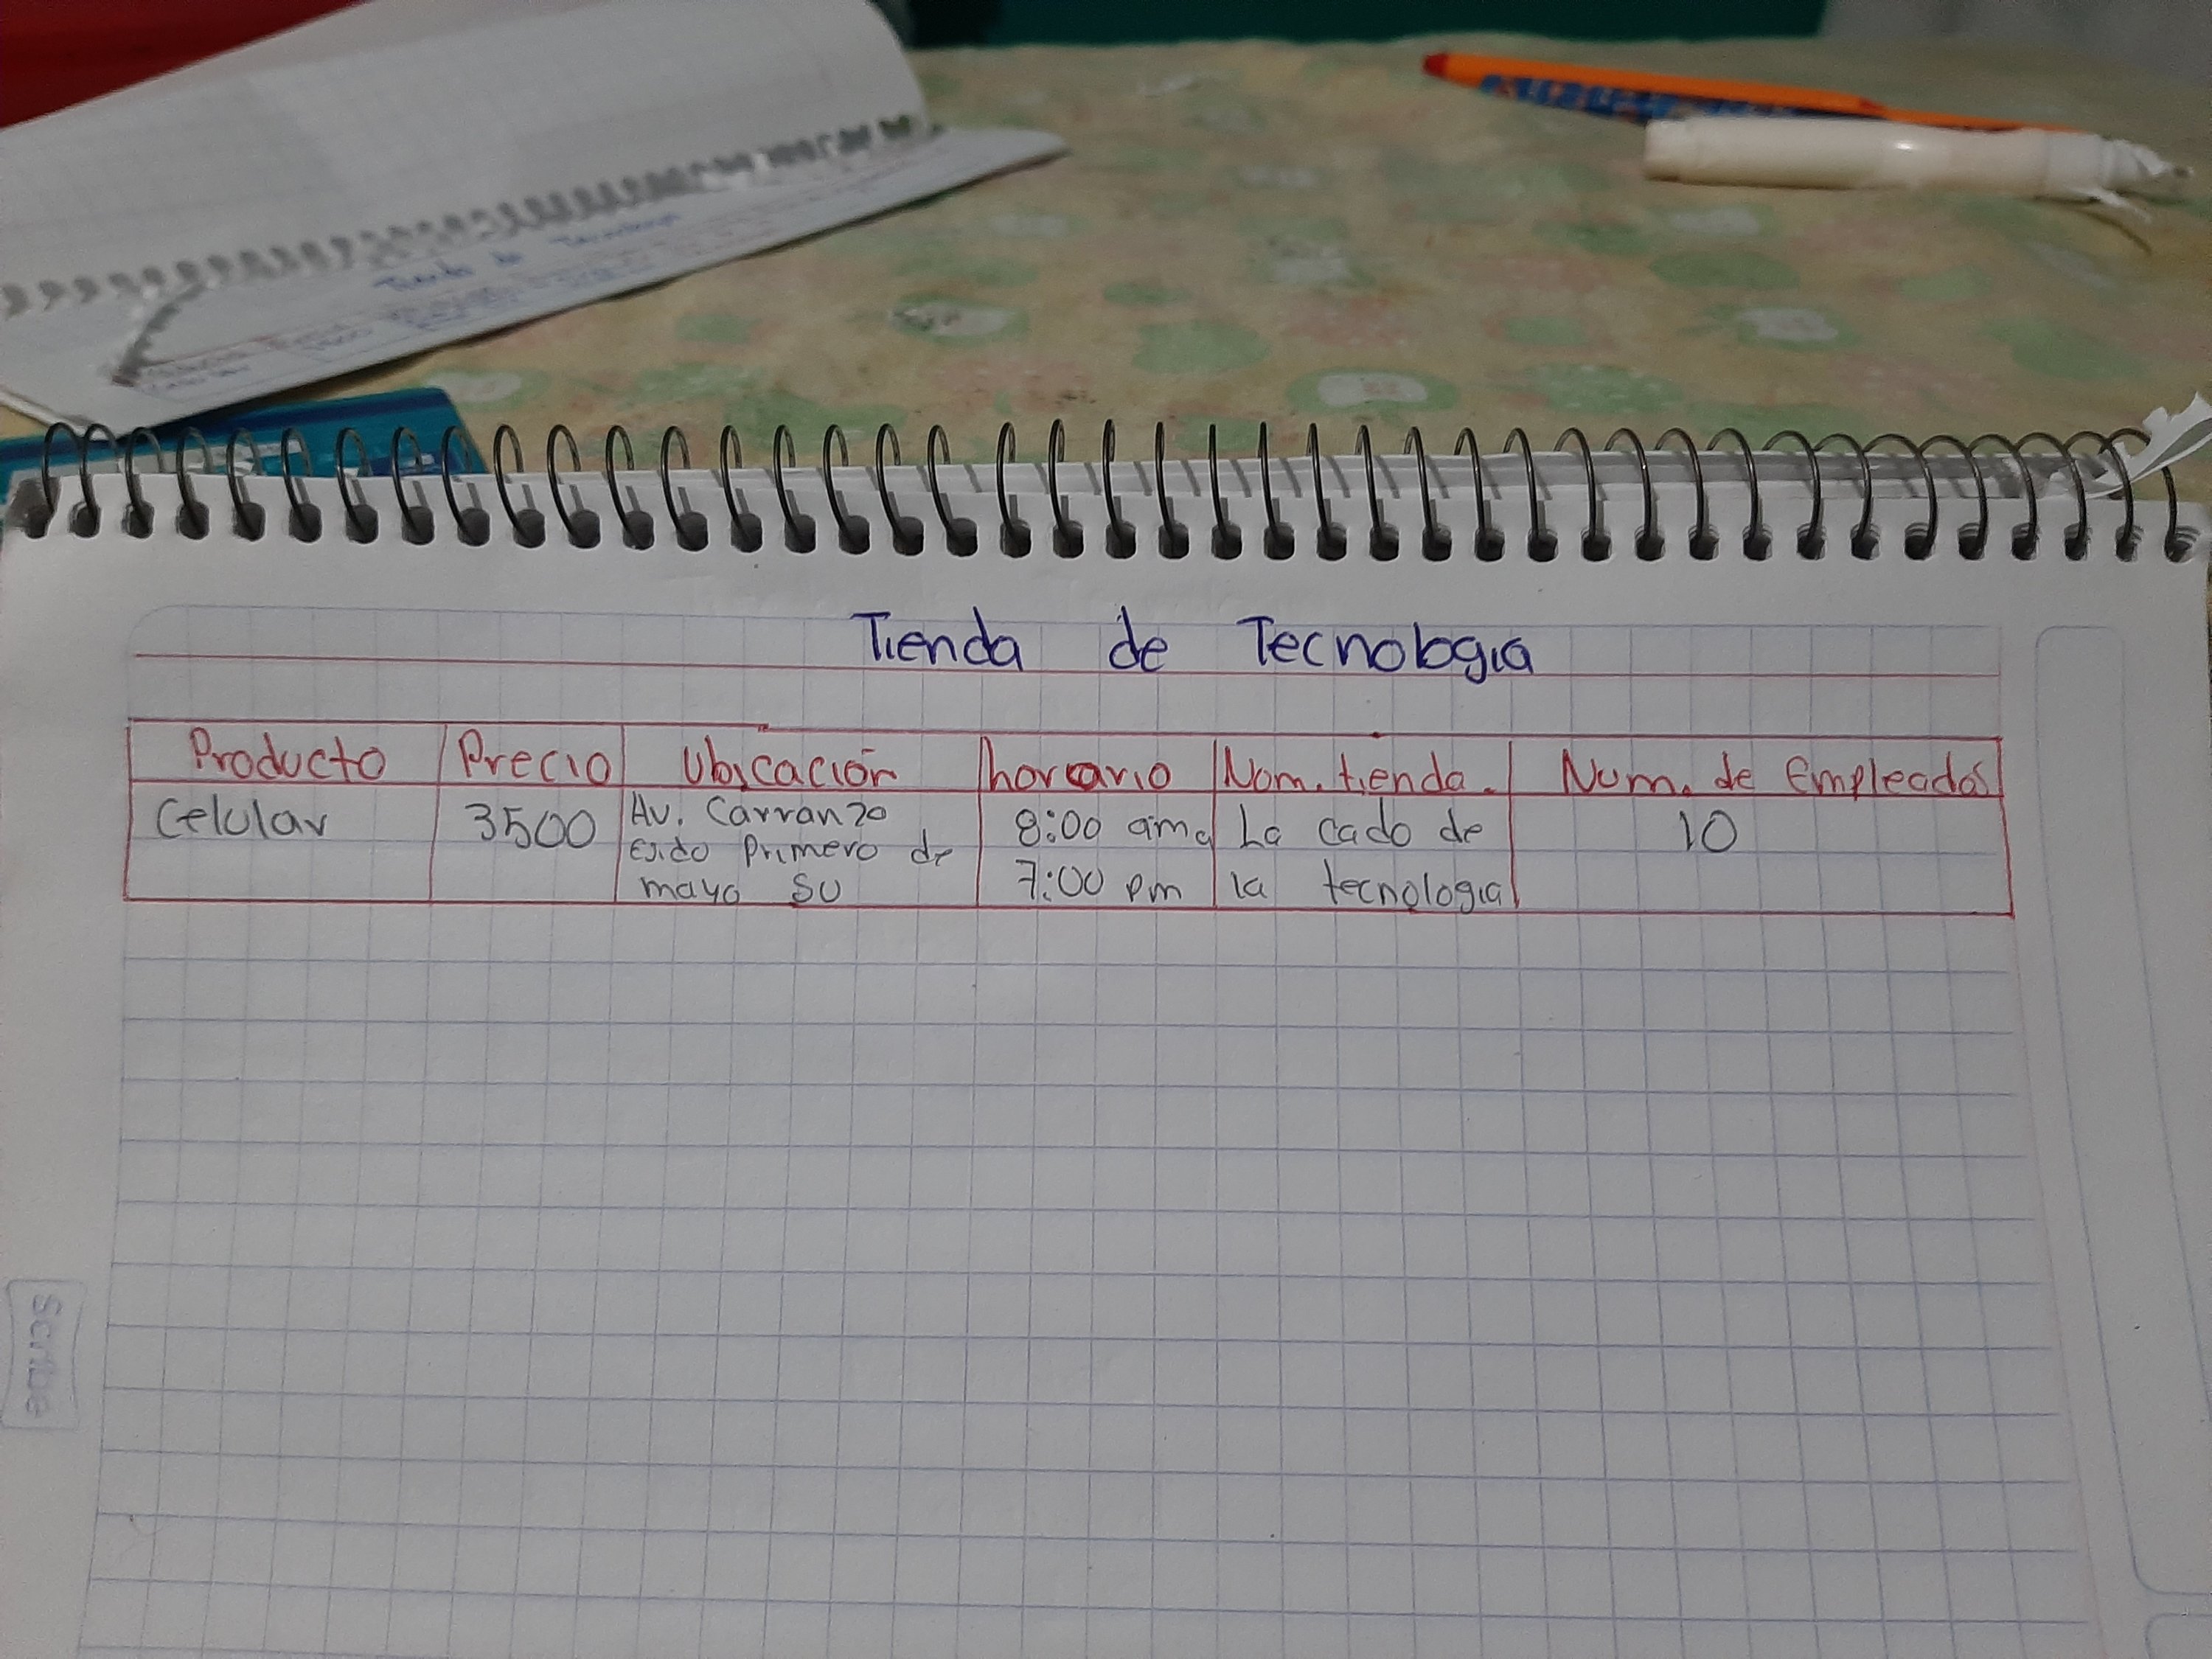 Tienda de Tecnologia
Producto Precio Ubicación horario Nom. tienda. Num. de Empleados
Celular 3500 Av. Carranzo 8:00 am a La cado de 10
Primero de 7:00 pm la tecnologia
mayo SU
Scribe